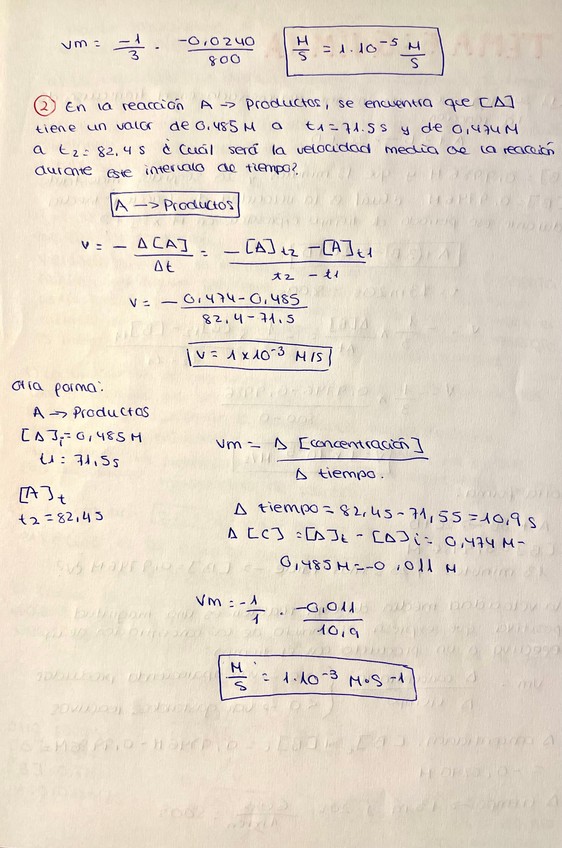 Vm = -1/3 · -0,0240/800 M/S = 1·10⁻⁵ M/S
② En la reacción A → Productos, se encuentra que [A]
tiene un valor de 0,485M a t1=71.5s y de 0,474M
a t2=82,4s ¿ Cuál será la velocidad media de la reacción
durante este intervalo de tiempo?
A → Productos
v = - Δ[A]/Δt = -[A]t2 - [A]t1 / t2 - t1
v = - 0,474-0,485 / 82,4-71,5
v = 1x10⁻³ M/S
Otra forma:
A → Productos
[A]i = 0,485M
t1 = 71,5s
[A]t
t2 = 82,4s
Vm = Δ [concentración] / Δ tiempo.
Δ tiempo = 82,4s - 71,5s = 10,9 s
Δ [C] = [A]t - [A]i = 0,474 M-
0,485M = -0,011 M
Vm = -1/1 · -0,011/10,9
M/S = 1·10⁻³ M·S-1